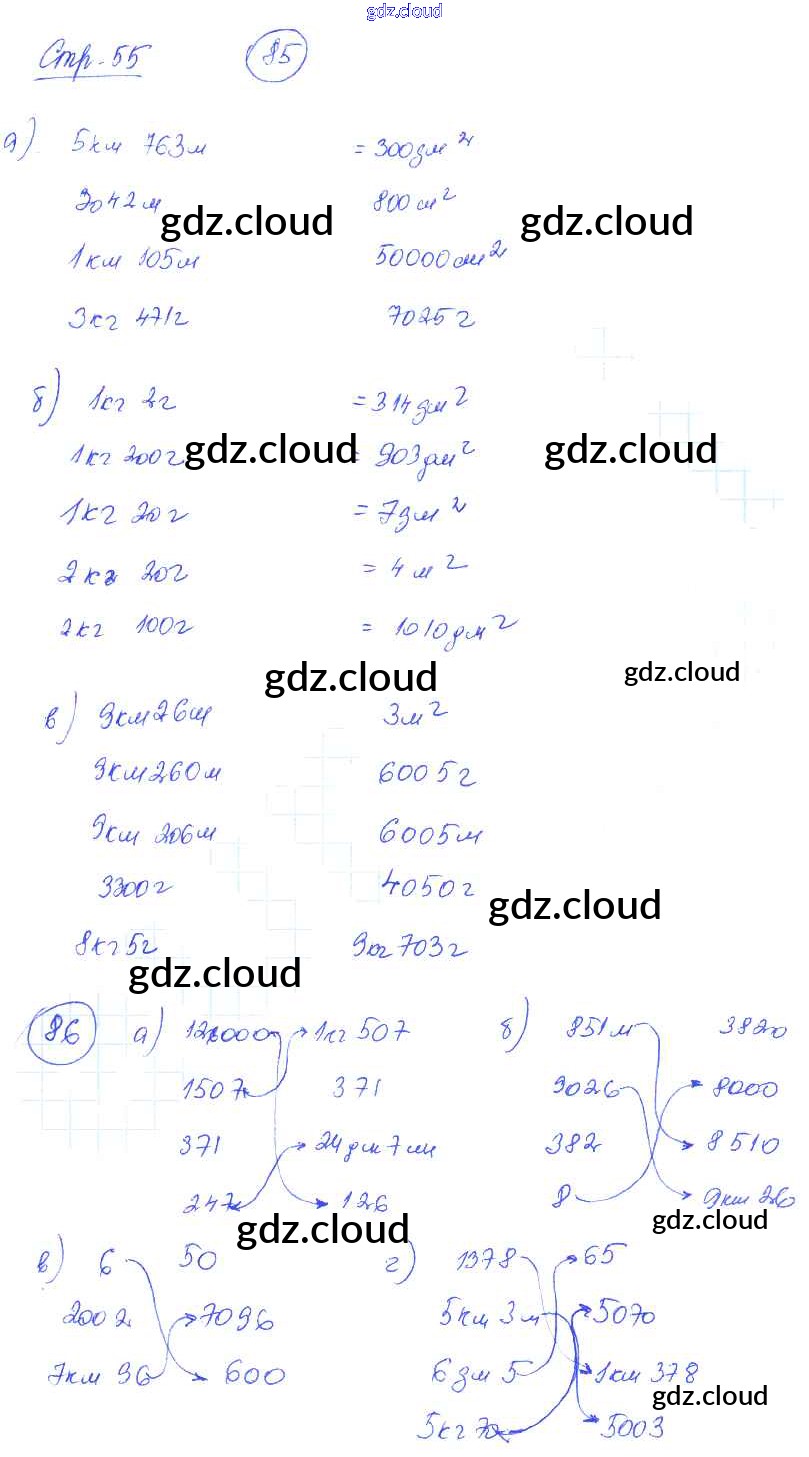 gdz.cloud
Стр. 55 85
а) 5км 763м = 300дм²
3042м 800см²
gdz.cloud gdz.cloud
1км 105м 50000см²
3кг 471г 7025г
б) 1кг 2г = 314дм²
1кг 200г = 903дм²
gdz.cloud gdz.cloud
1кг 20г = 7дм²
2кг 20г = 4м²
2кг 100г = 1010дм²
gdz.cloud gdz.cloud
в) 9км 26м 3м²
9км 260м 6005г
9км 206м 6005м
3300г 4050г
gdz.cloud
8кг 5г 9кг 703г
gdz.cloud
86 а) 126000 1кг 507 б) 851м 3820
1507 371 9026 8000
371 24дм 7см 382 8510
247 126 8 9км 26
gdz.cloud gdz.cloud
в) 6 50 г) 1378 65
2002 7096 5км 3м 5070
7км 96 600 6дм 5 1км 378
gdz.cloud
5кг 70 5003